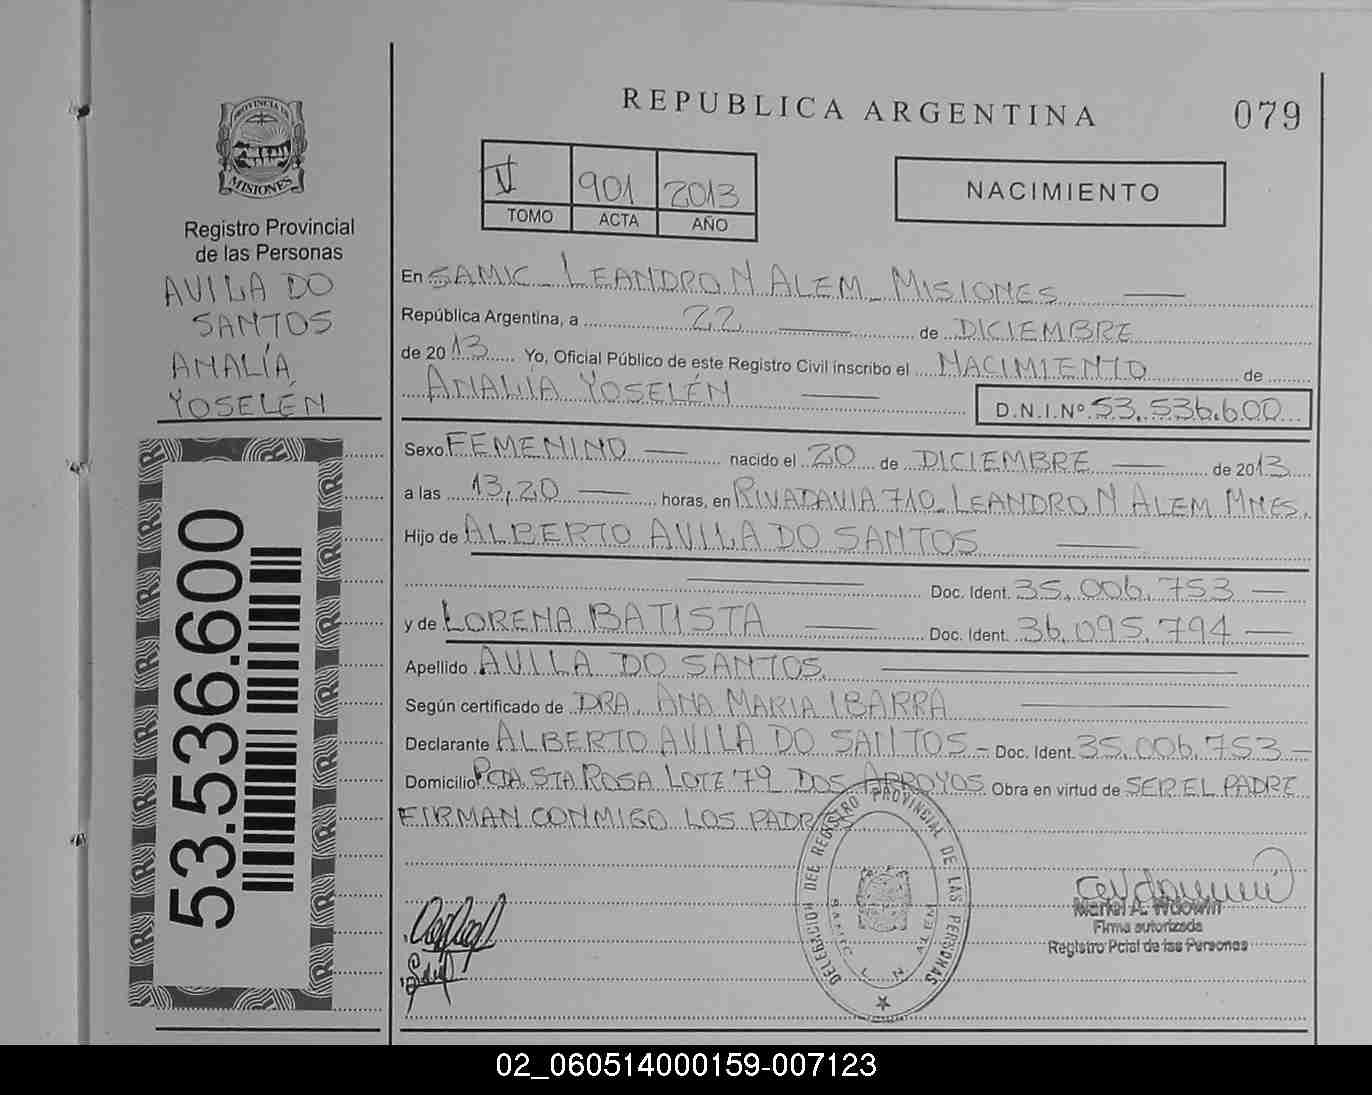 REPUBLICA ARGENTINA
079
PROVINCIA DE
MISIONES
Registro Provincial
de las Personas
AVILA DO
SANTOS
ANALÍA
YOSELÉN
53.536.600
V 901 2013
TOMO ACTA AÑO
NACIMIENTO
En SAMIC_ LEANDRO N ALEM_ MISIONES
República Argentina, a 22 de DICIEMBRE
de 2013 Yo, Oficial Público de este Registro Civil inscribo el NACIMIENTO de
ANALÍA YOSELÉN
D.N.I.Nº 53.536.600
Sexo FEMENINO nacido el 20 de DICIEMBRE de 2013
a las 13,20 horas, en RIVADAVIA 710_ LEANDRO N ALEM MNES.
Hijo de ALBERTO AVILA DO SANTOS
Doc. Ident. 35.006.753
y de LORENA BATISTA Doc. Ident. 36.095.794
Apellido AVILA DO SANTOS
Según certificado de DRA. ANA MARIA IBARRA
Declarante ALBERTO AVILA DO SANTOS - Doc. Ident. 35.006.753
Domicilio PCIA STA ROSA LOTE 79 DOS ARROYOS Obra en virtud de SER EL PADRE
FIRMAN CONMIGO LOS PADRES
DELEGACION DEL REGISTRO PROVINCIAL DE LAS PERSONAS
SAMIC L. N. ALEM
Mariel A. Wdowin
Firma autorizada
Registro Pcial de las Personas
02_060514000159-007123